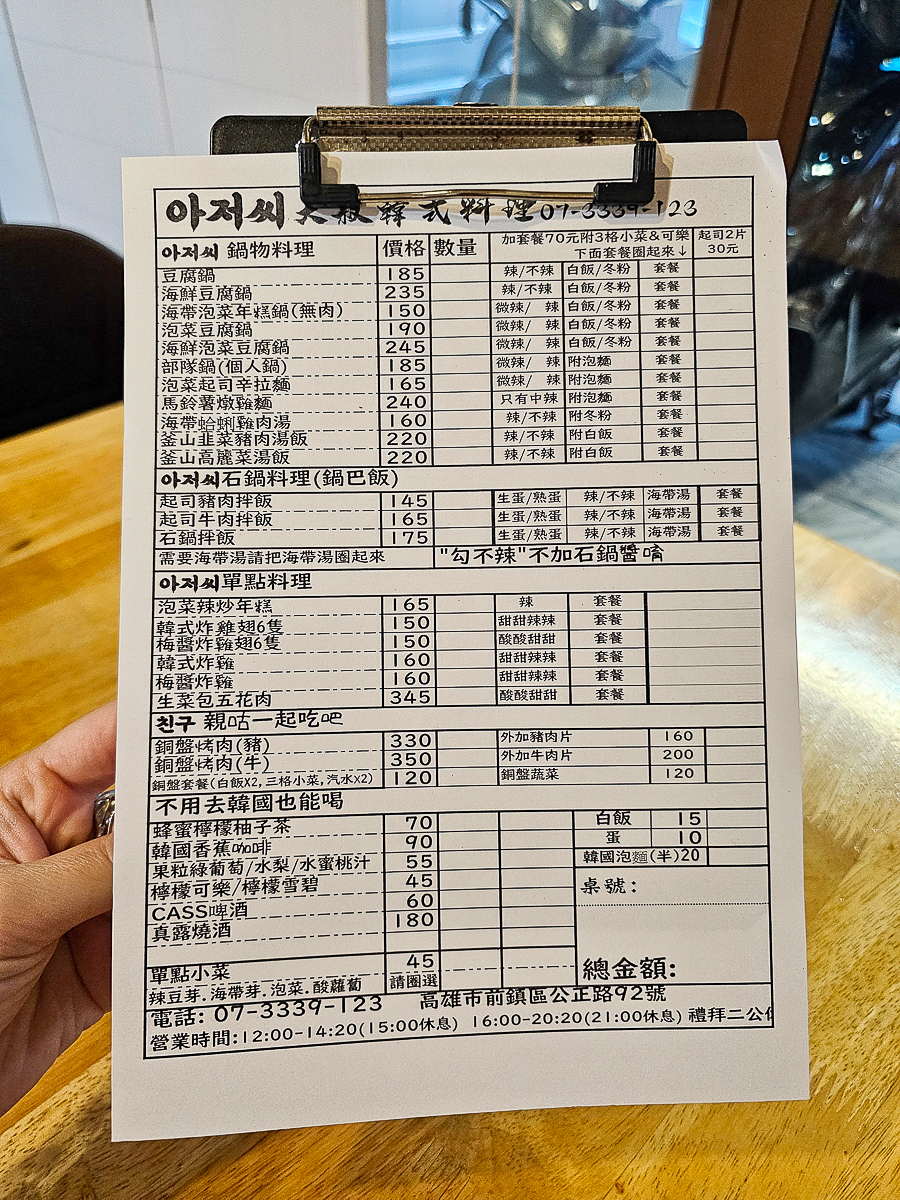 아저씨 大叔韓式料理07-3339-123
아저씨 鍋物料理 價格 數量 加套餐70元附3格小菜&可樂 下面套餐圈起來↓ 起司2片 30元
豆腐鍋 185 辣/不辣 白飯/冬粉 套餐
海鮮豆腐鍋 235 辣/不辣 白飯/冬粉 套餐
海帶泡菜年糕鍋(無肉) 150 微辣/ 辣 白飯/冬粉 套餐
泡菜豆腐鍋 190 微辣/ 辣 白飯/冬粉 套餐
海鮮泡菜豆腐鍋 245 微辣/ 辣 白飯/冬粉 套餐
部隊鍋(個人鍋) 185 微辣/ 辣 附泡麵 套餐
泡菜起司辛拉麵 165 微辣/ 辣 附泡麵 套餐
馬鈴薯燉雞麵 240 只有中辣 附泡麵 套餐
海帶蛤蜊雞肉湯 160 辣/不辣 附冬粉 套餐
釜山韭菜豬肉湯飯 220 辣/不辣 附白飯 套餐
釜山高麗菜湯飯 220 辣/不辣 附白飯 套餐
아저씨石鍋料理(鍋巴飯)
起司豬肉拌飯 145 生蛋/熟蛋 辣/不辣 海帶湯 套餐
起司牛肉拌飯 165 生蛋/熟蛋 辣/不辣 海帶湯 套餐
石鍋拌飯 175 生蛋/熟蛋 辣/不辣 海帶湯 套餐
需要海帶湯請把海帶湯圈起來 "勾不辣"不加石鍋醬唷
아저씨單點料理
泡菜辣炒年糕 165 辣 套餐
韓式炸雞翅6隻 150 甜甜辣辣 套餐
梅醬炸雞翅6隻 150 酸酸甜甜 套餐
韓式炸雞 160 甜甜辣辣 套餐
梅醬炸雞 160 甜甜辣辣 套餐
生菜包五花肉 345 酸酸甜甜 套餐
친구 親咕一起吃吧
銅盤烤肉(豬) 330 外加豬肉片 160
銅盤烤肉(牛) 350 外加牛肉片 200
銅盤套餐(白飯X2,三格小菜,汽水X2) 120 銅盤蔬菜 120
不用去韓國也能喝
蜂蜜檸檬柚子茶 70 白飯 15
韓國香蕉咖啡 90 蛋 10
果粒綠葡萄/水梨/水蜜桃汁 55 韓國泡麵(半)20
檸檬可樂/檸檬雪碧 45 桌號:
CASS啤酒 60
真露燒酒 180
單點小菜 45 總金額:
辣豆芽.海帶芽.泡菜.酸蘿蔔 請圈選
電話: 07-3339-123 高雄市前鎮區公正路92號
營業時間:12:00-14:20(15:00休息) 16:00-20:20(21:00休息) 禮拜二公休